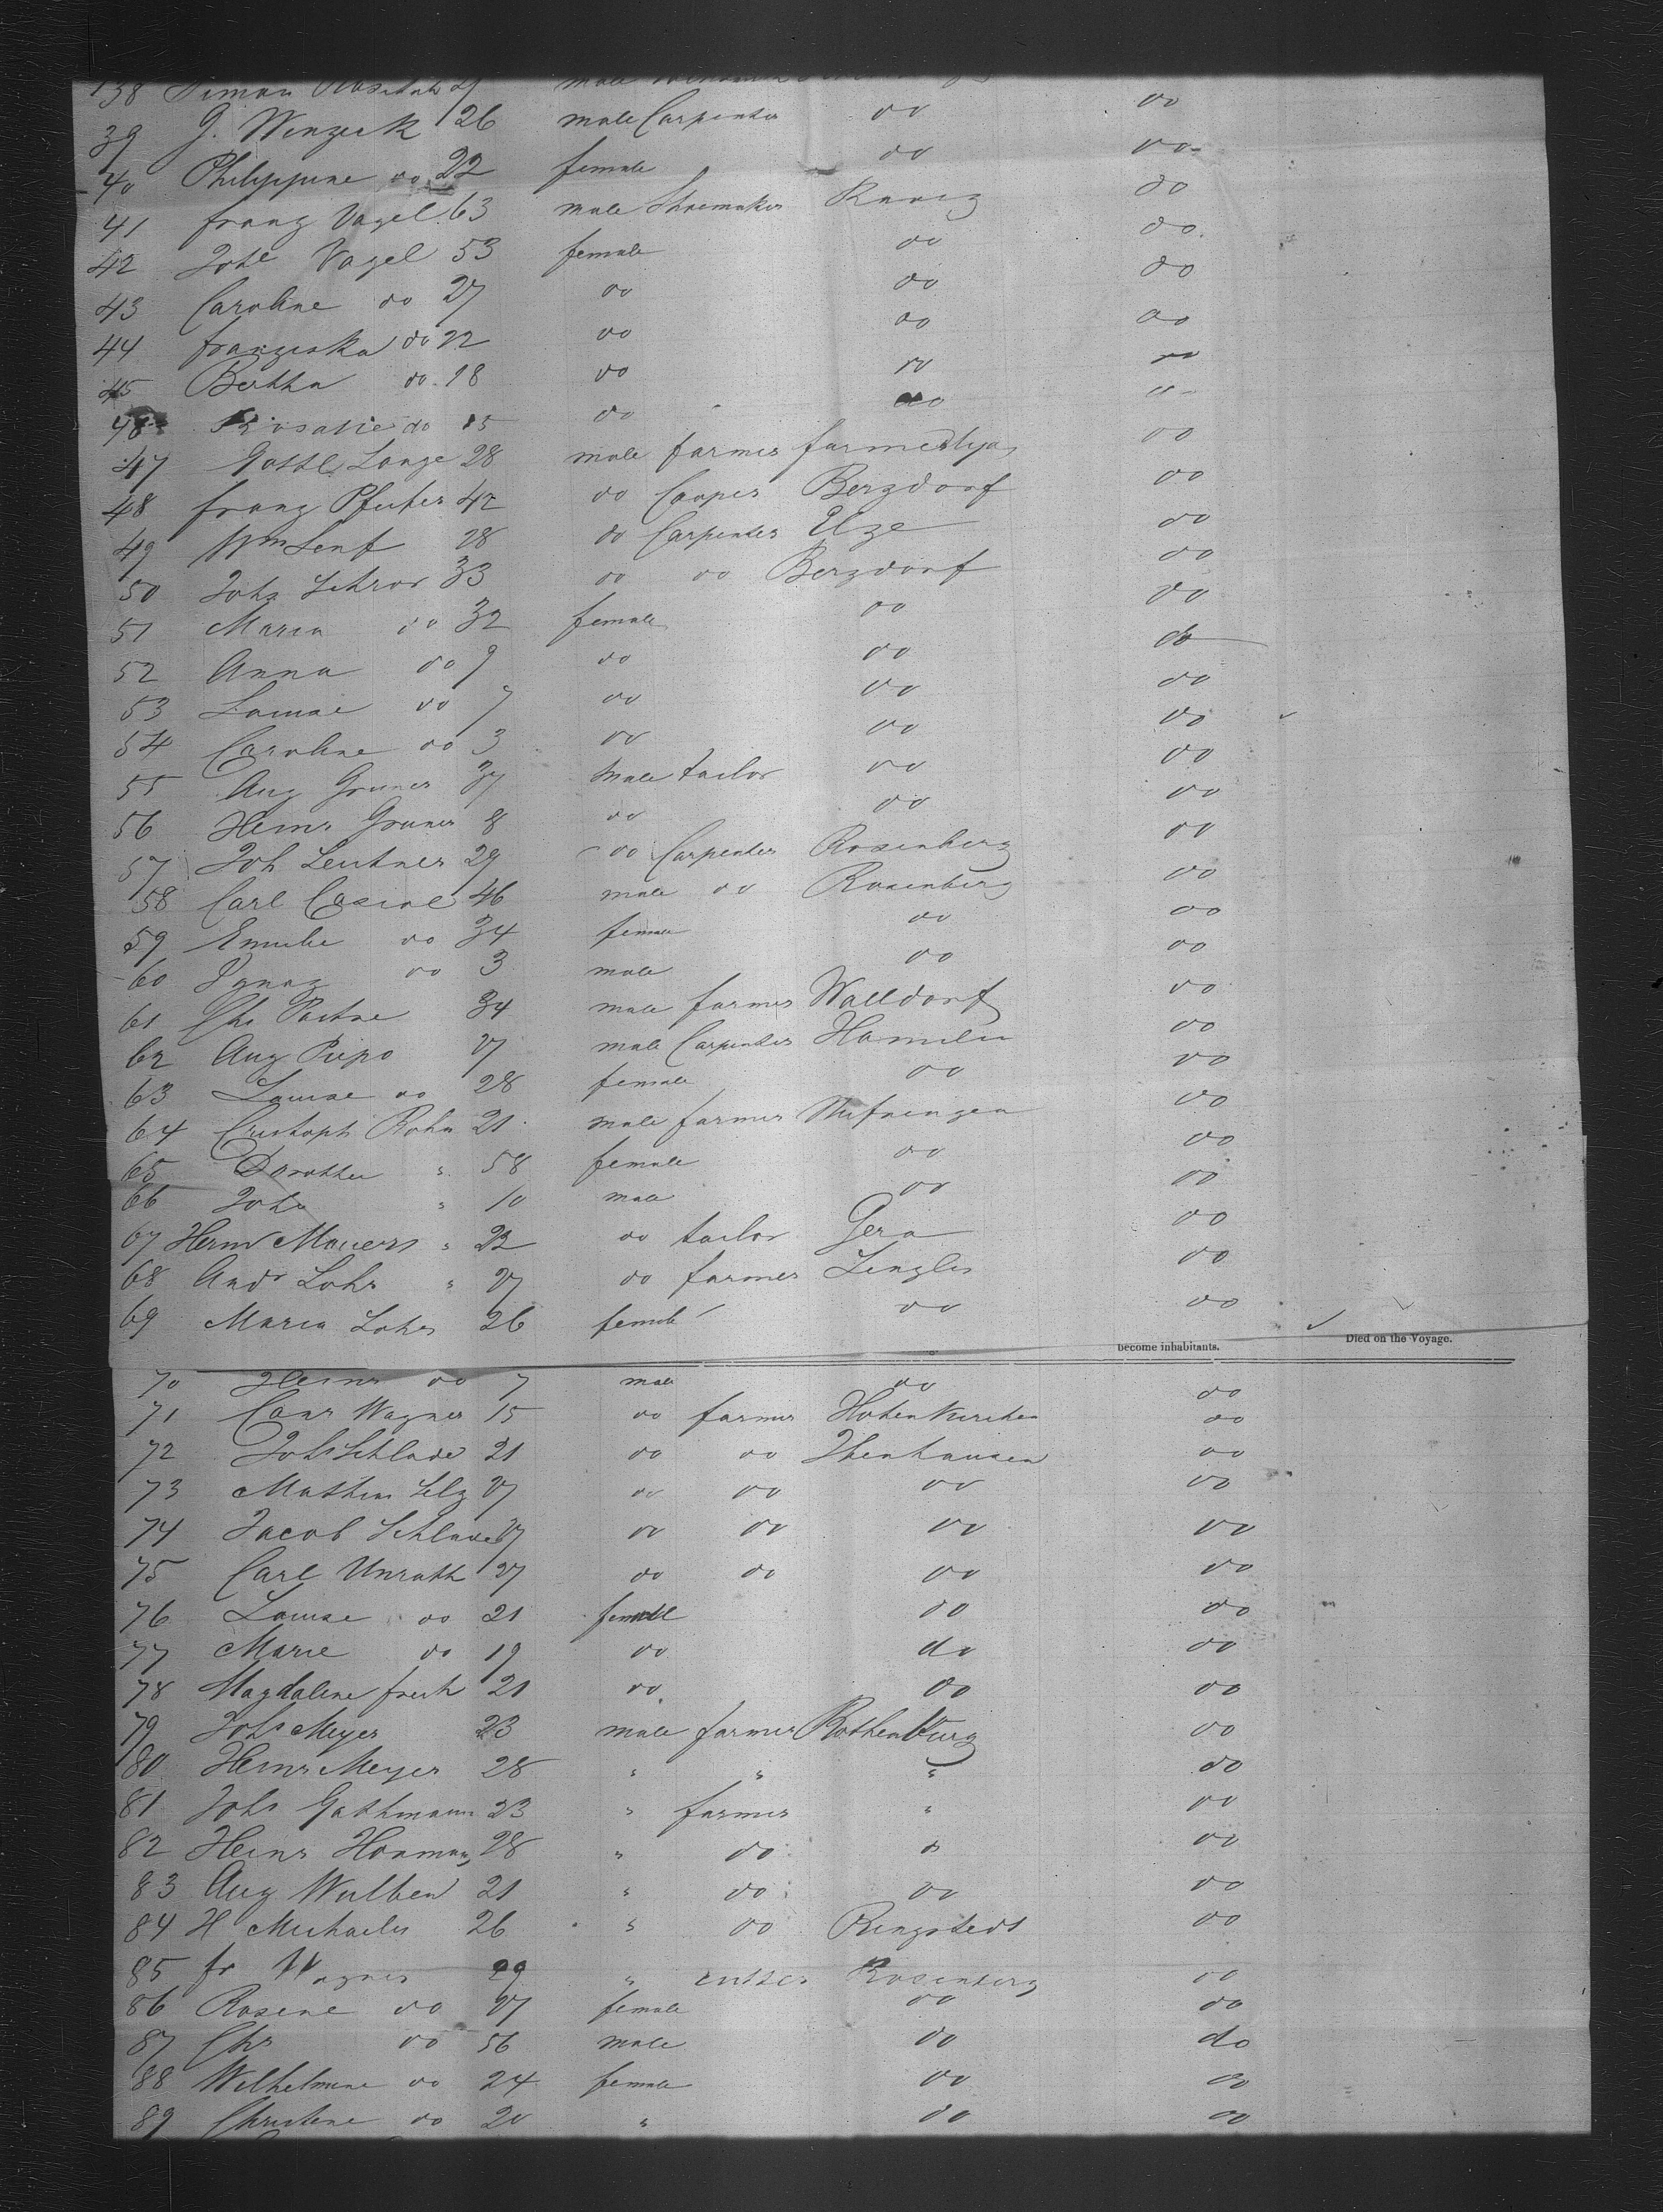 138 Simon 29 male
39 J. Wenzeck 26 male Carpenter do do
40 Philippine do 22 female do do
41 Franz Vagel 63 male Shoemaker do
42 Johe Vagel 53 female do do
43 Caroline do 27 do do do
44 Franziska do 22 do do do
45 Bertha do 18 do do do
46 Rosalie do 15 do do "
47 Gottl Lange 28 male farmer do
48 Franz 42 do Cooper Bergdorf do
49 Wm Senf 28 do Carpenter Elze do
50 Johs Schror 33 do do Bergdorf do
51 Maria do 32 female do do
52 Anna do 9 do do do
53 Louise do 7 do do do
54 Caroline do 3 do do do
55 Aug Gruner 37 male tailor do do
56 Heinr Gruner 8 do do do
57 Joh Leutner 29 do Carpenter Rosenberg do
58 Carl 46 male do Rosenberg do
59 Emilie do 34 female do do
60 Ignaz do 3 male do do
61 Chr 34 male farmer Walldorf do
62 Aug Piepo 27 male Carpenter Hameln do
63 Louise do 28 female do do
64 Cristoph Rohn 21 male farmer do
65 Dorothea " 58 female do do
66 Johs " 10 male do do
67 Herm Mauers " 22 do tailor Gera do
68 Andr Lohr " 27 do farmer Lengler do
69 Maria Lohr 26 female do do
become inhabitants. Died on the Voyage.
70 Heinr do 7 male do do
71 Conr Wagner 15 do farmer Hohenkirchen do
72 Johs Schlade 21 do do Ihenhausen do
73 Mathias Selz 27 do do do do
74 Jacob Schlade 27 do do do do
75 Carl Unrath 27 do do do do
76 Louise do 21 female do do
77 Marie do 19 do do do
78 Magdalene 21 do do do
79 Johs Meyer 23 male farmer Rothenburg do
80 Heinr Meyer 28 " " " do
81 Johs Gathmann 23 " farmer " do
82 Heinr Honmann 28 " do " do
83 Aug Wulben 21 " do do do
84 H Michaelis 26 " do Ringstedt do
85 Fr Wagner 29 " Rosenberg do
86 Rosine do 27 female do do
87 Chr do 56 male do do
88 Wilhelmine do 24 female do do
89 Christine do 20 " do do